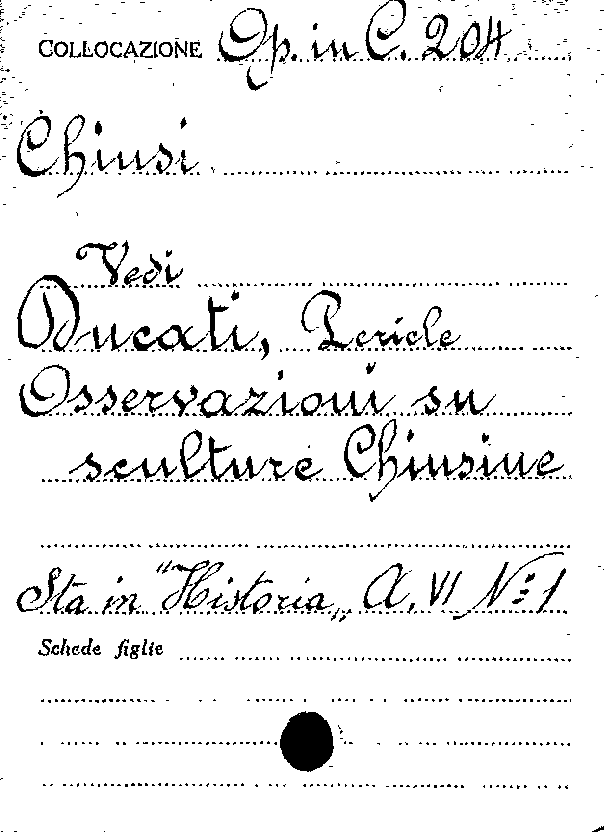 COLLOCAZIONE Op. in C. 204
Chiusi
Vedi
Ducati, Pericle
Osservazioni su
sculture Chiusine
Sta in "Historia„ A. VI N.º 1
Schede figlie